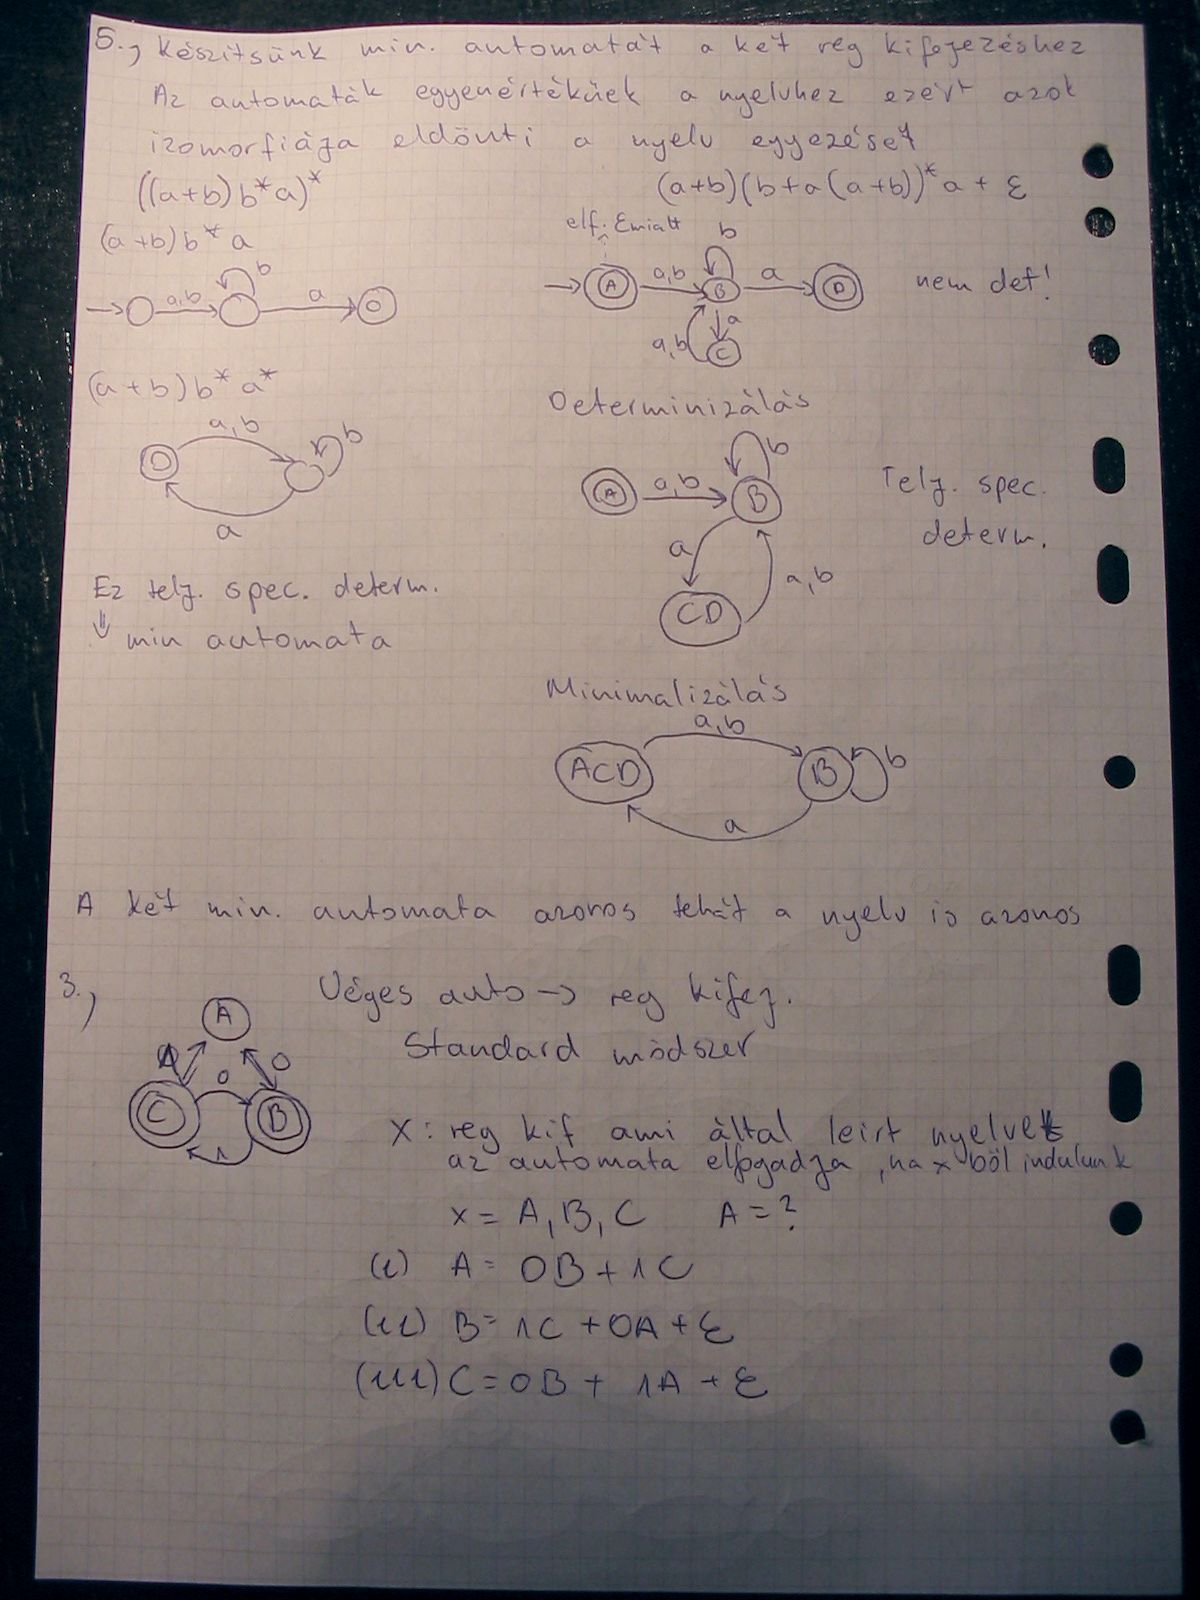 5., Készítsünk min. automatát a két reg kifejezéshez
Az automaták egyenértékűek a nyelvhez ezért azok
izomorfiája eldönti a nyelv egyezését
((a+b)b*a)*
(a+b)(b+a(a+b))*a + ε
(a+b)b*a
elf. ε miatt
a,b
b
a
A
a,b
B
b
a
D
a
a,b
C
nem det!
(a+b)b*a*
a,b
b
a
Determinizálás
A
a,b
B
b
a
a,b
CD
Telj. spec.
determ.
Ez telj. spec. determ.
⇓ min automata
Minimalizálás
a,b
ACD
B
b
a
A két min. automata azonos tehát a nyelv is azonos
3.,
Véges auto → reg kifej.
Standard módszer
A
0
0
C
B
1
X: reg kif ami által leírt nyelvet
az automata elfogadja, ha x ből indulunk
x = A, B, C A = ?
(i) A = 0B + 1C
(ii) B = 1C + 0A + ε
(iii) C = 0B + 1A + ε